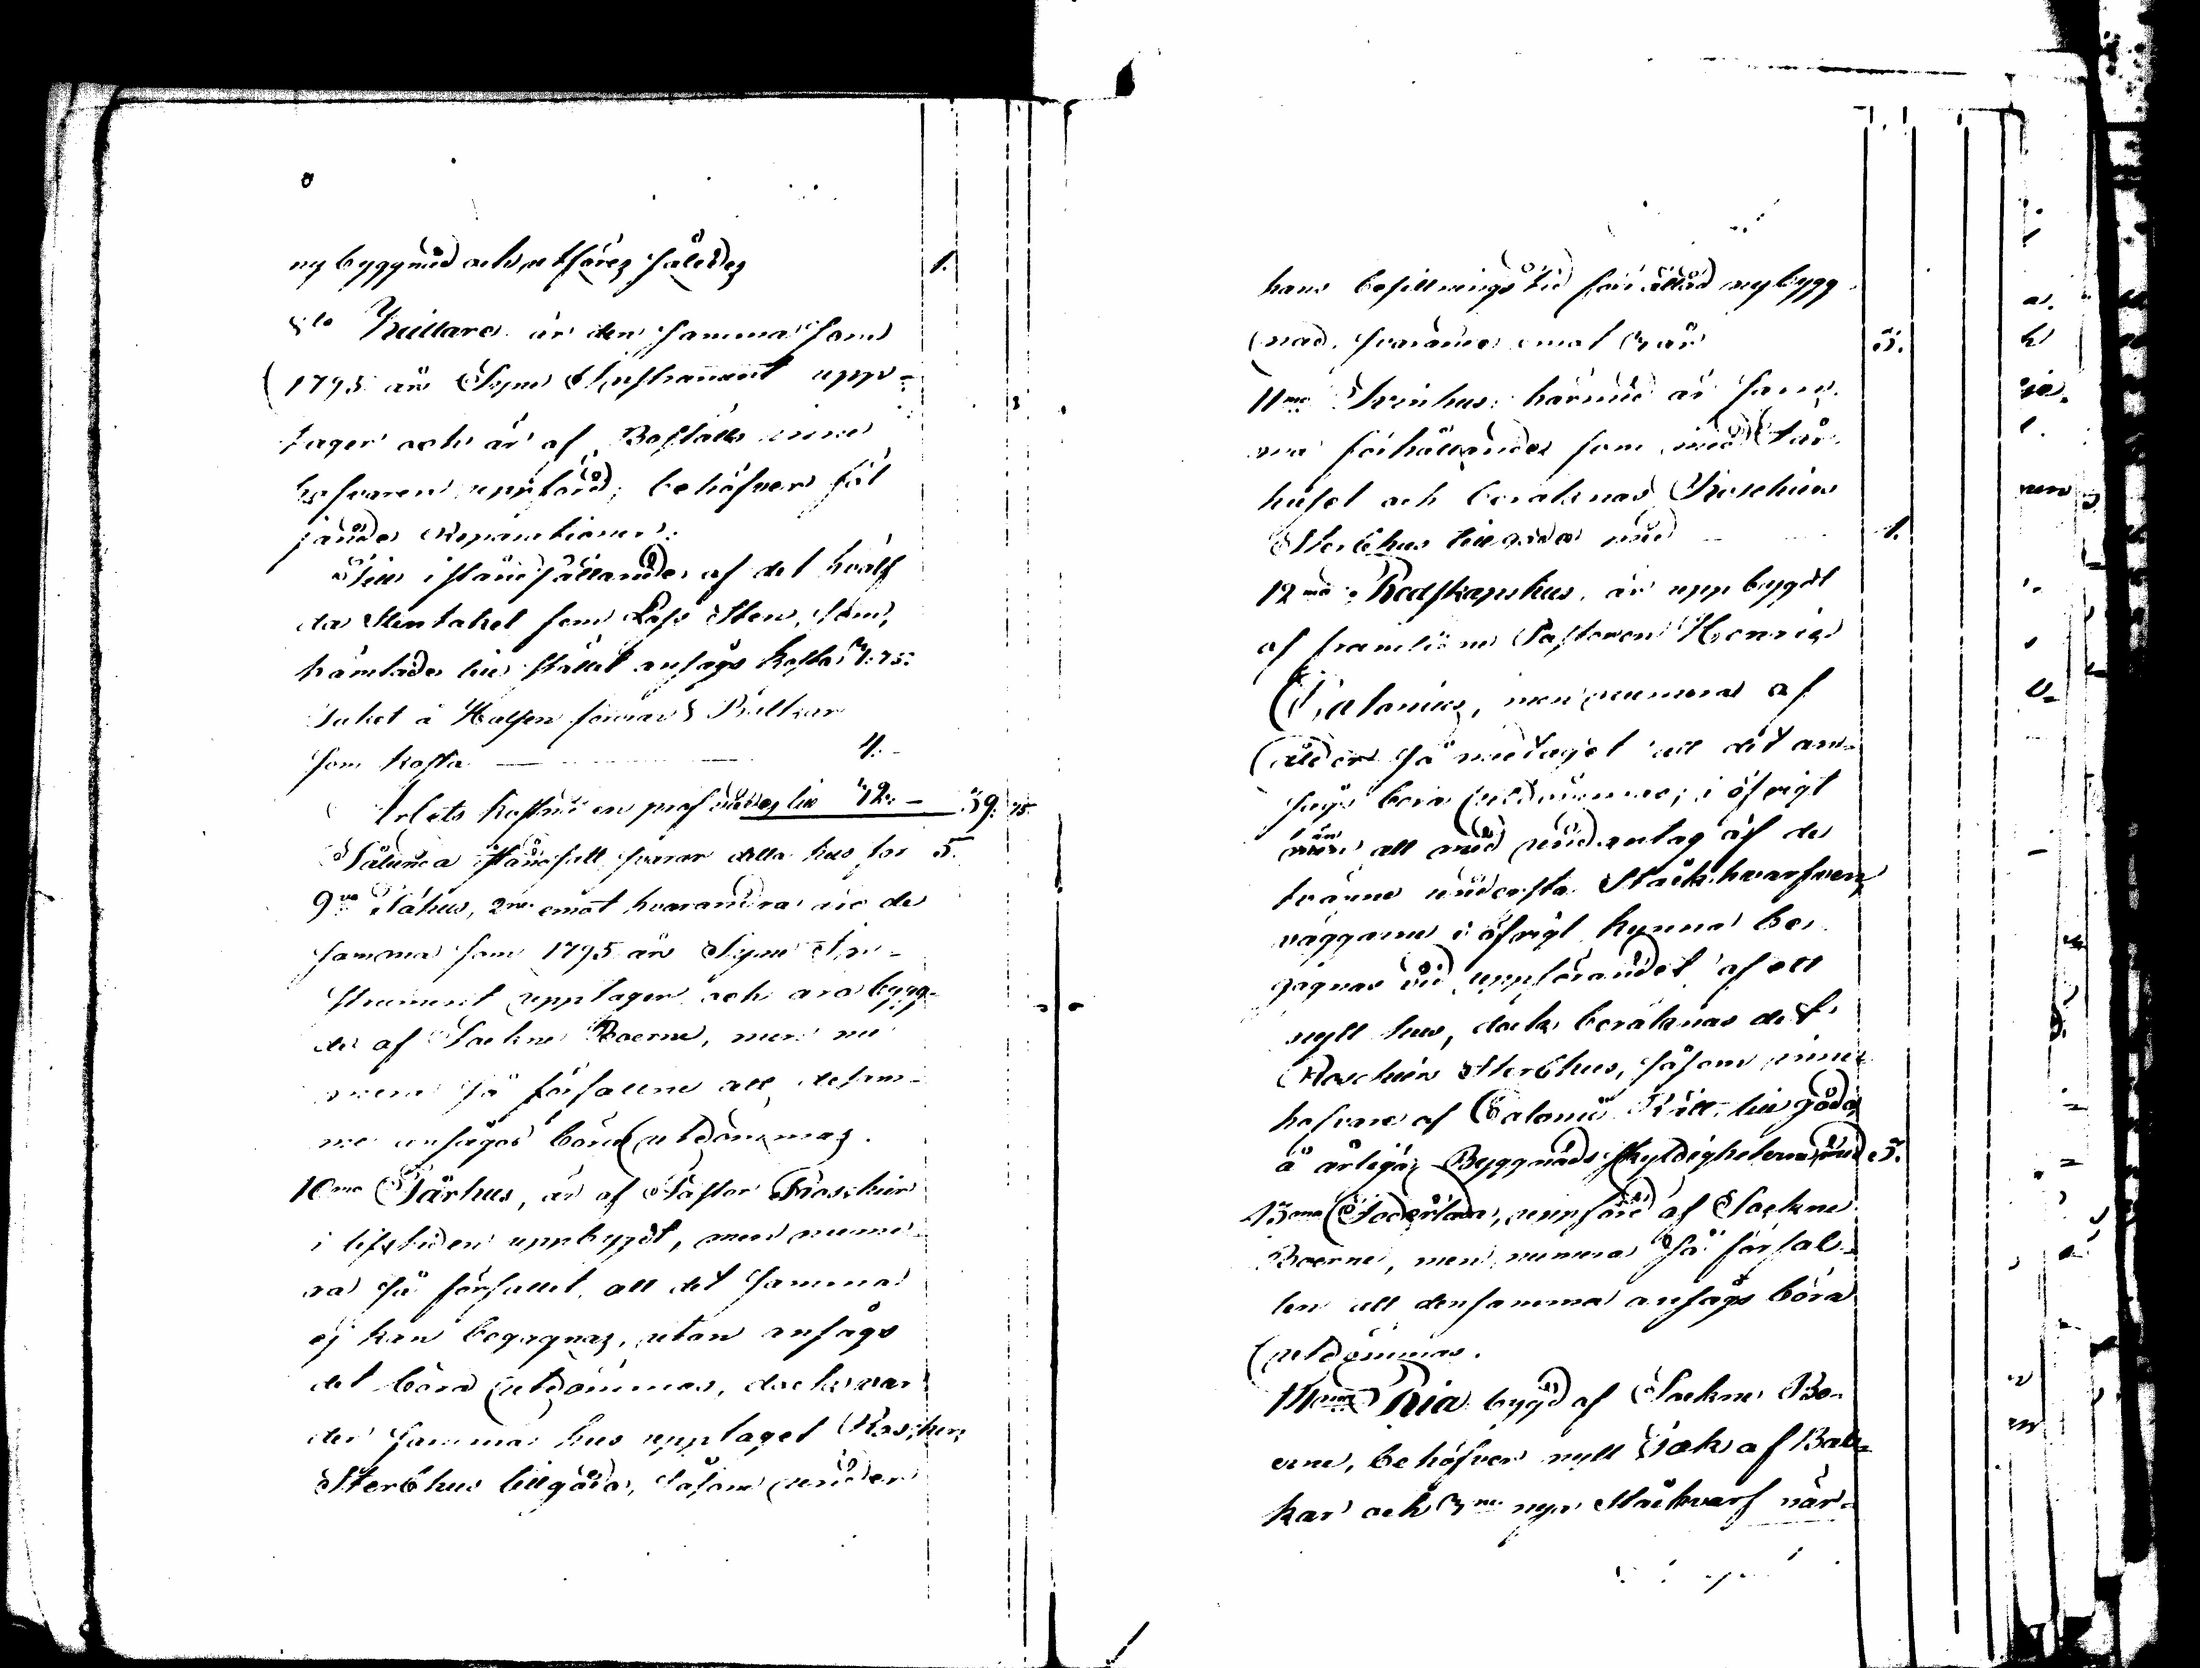 nybyggnad och utföres således 1.
8to Kiellare är den samma som
1795 års Syne Instrument upp-
tager och är af Boställs inne
hafvaren uppförd; behöfver föl
jande Reparationer.
Till iståndsättande af det hvälf
da Stentaket fem Lass Sten, som,
hämtade till stället ansågs kosta 3:75.
Taket å Halfen fordrar 8 Bultkar
som kosta 4.-
Arbets kostnaden prof uneras till 12.- 39. 75.
Sålunda iståndsatt svarar detta hus för 5.
9no Fähus, 2ne emot hvarandra äro de
samma som 1795 års Syne In-
strument upptager och äro bygg-
de af Sockne Boerne, men nu
mera så förfallne att desam-
me ansågos böra utdömmas.
10mo Fårhus, är af Pastor Roschier
i lifstiden uppbygdt, men nume-
ra så förfallet, att det samma
ej kan begagnas, utan ansågs
det böra utdömmas, dock var
der samma hus upptaget Roschiers
Sterbhus tillgodo, såsom under
hans besittnings tid förrättad nybygg
nad, svarande emot 3 år 5.
11mo Svinhus, härmed är sam-
ma förhållande som med Får-
huset och beräknas Roschiers
Sterbhus tillgodo med 1.
12mo Redskapshus, är uppbygdt
af framlidne Pastoren Henric
Calonius, men numera af
ålder så medtaget att det an-
sågs böra utdömmas; i öfrigt
än att med undantag af de
tvänne understa Stockhvarfven
väggarne i öfrigt kunna be-
gagnas vid uppförandet af ett
nytt hus, dock beräknas det
Roschiers Sterbhus, såsom inne
hafvare af Calonii Rätt, till godo
å årliga Byggnads skyldigheten med 5.
13mo Foderlada, uppförd af Sockne
Boerne, men numera så förfal-
len att densamma ansågs böra
utdömmas.
14mo Ria bygd af Sockne Bo-
erne, behöfver nytt Tak af Bult
kar och 3ne nya Stockhvarf när-